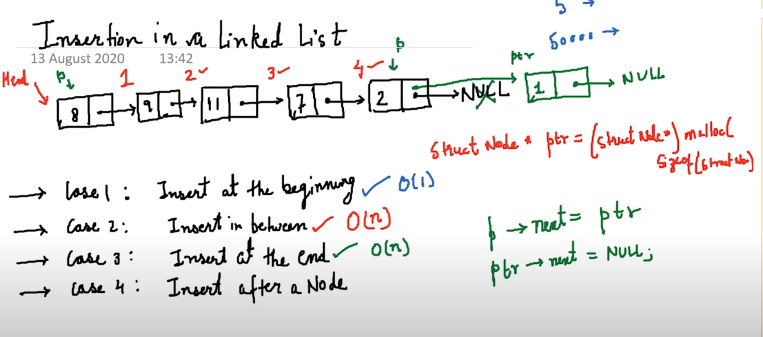 Insertion in a Linked List
13 August 2020 13:42
5 →
50000 →
Head
p
1
2
3
4
p
ptr
8
9
11
7
2
NULL
1
NULL
Struct Node * ptr = (struct Node*) malloc(
sizeof(struct No)
→ Case 1 : Insert at the beginning ✓ O(1)
→ Case 2 : Insert in between ✓ O(n)
→ Case 3 : Insert at the end ✓ O(n)
→ Case 4 : Insert after a Node
p → next = ptr
ptr → next = NULL;